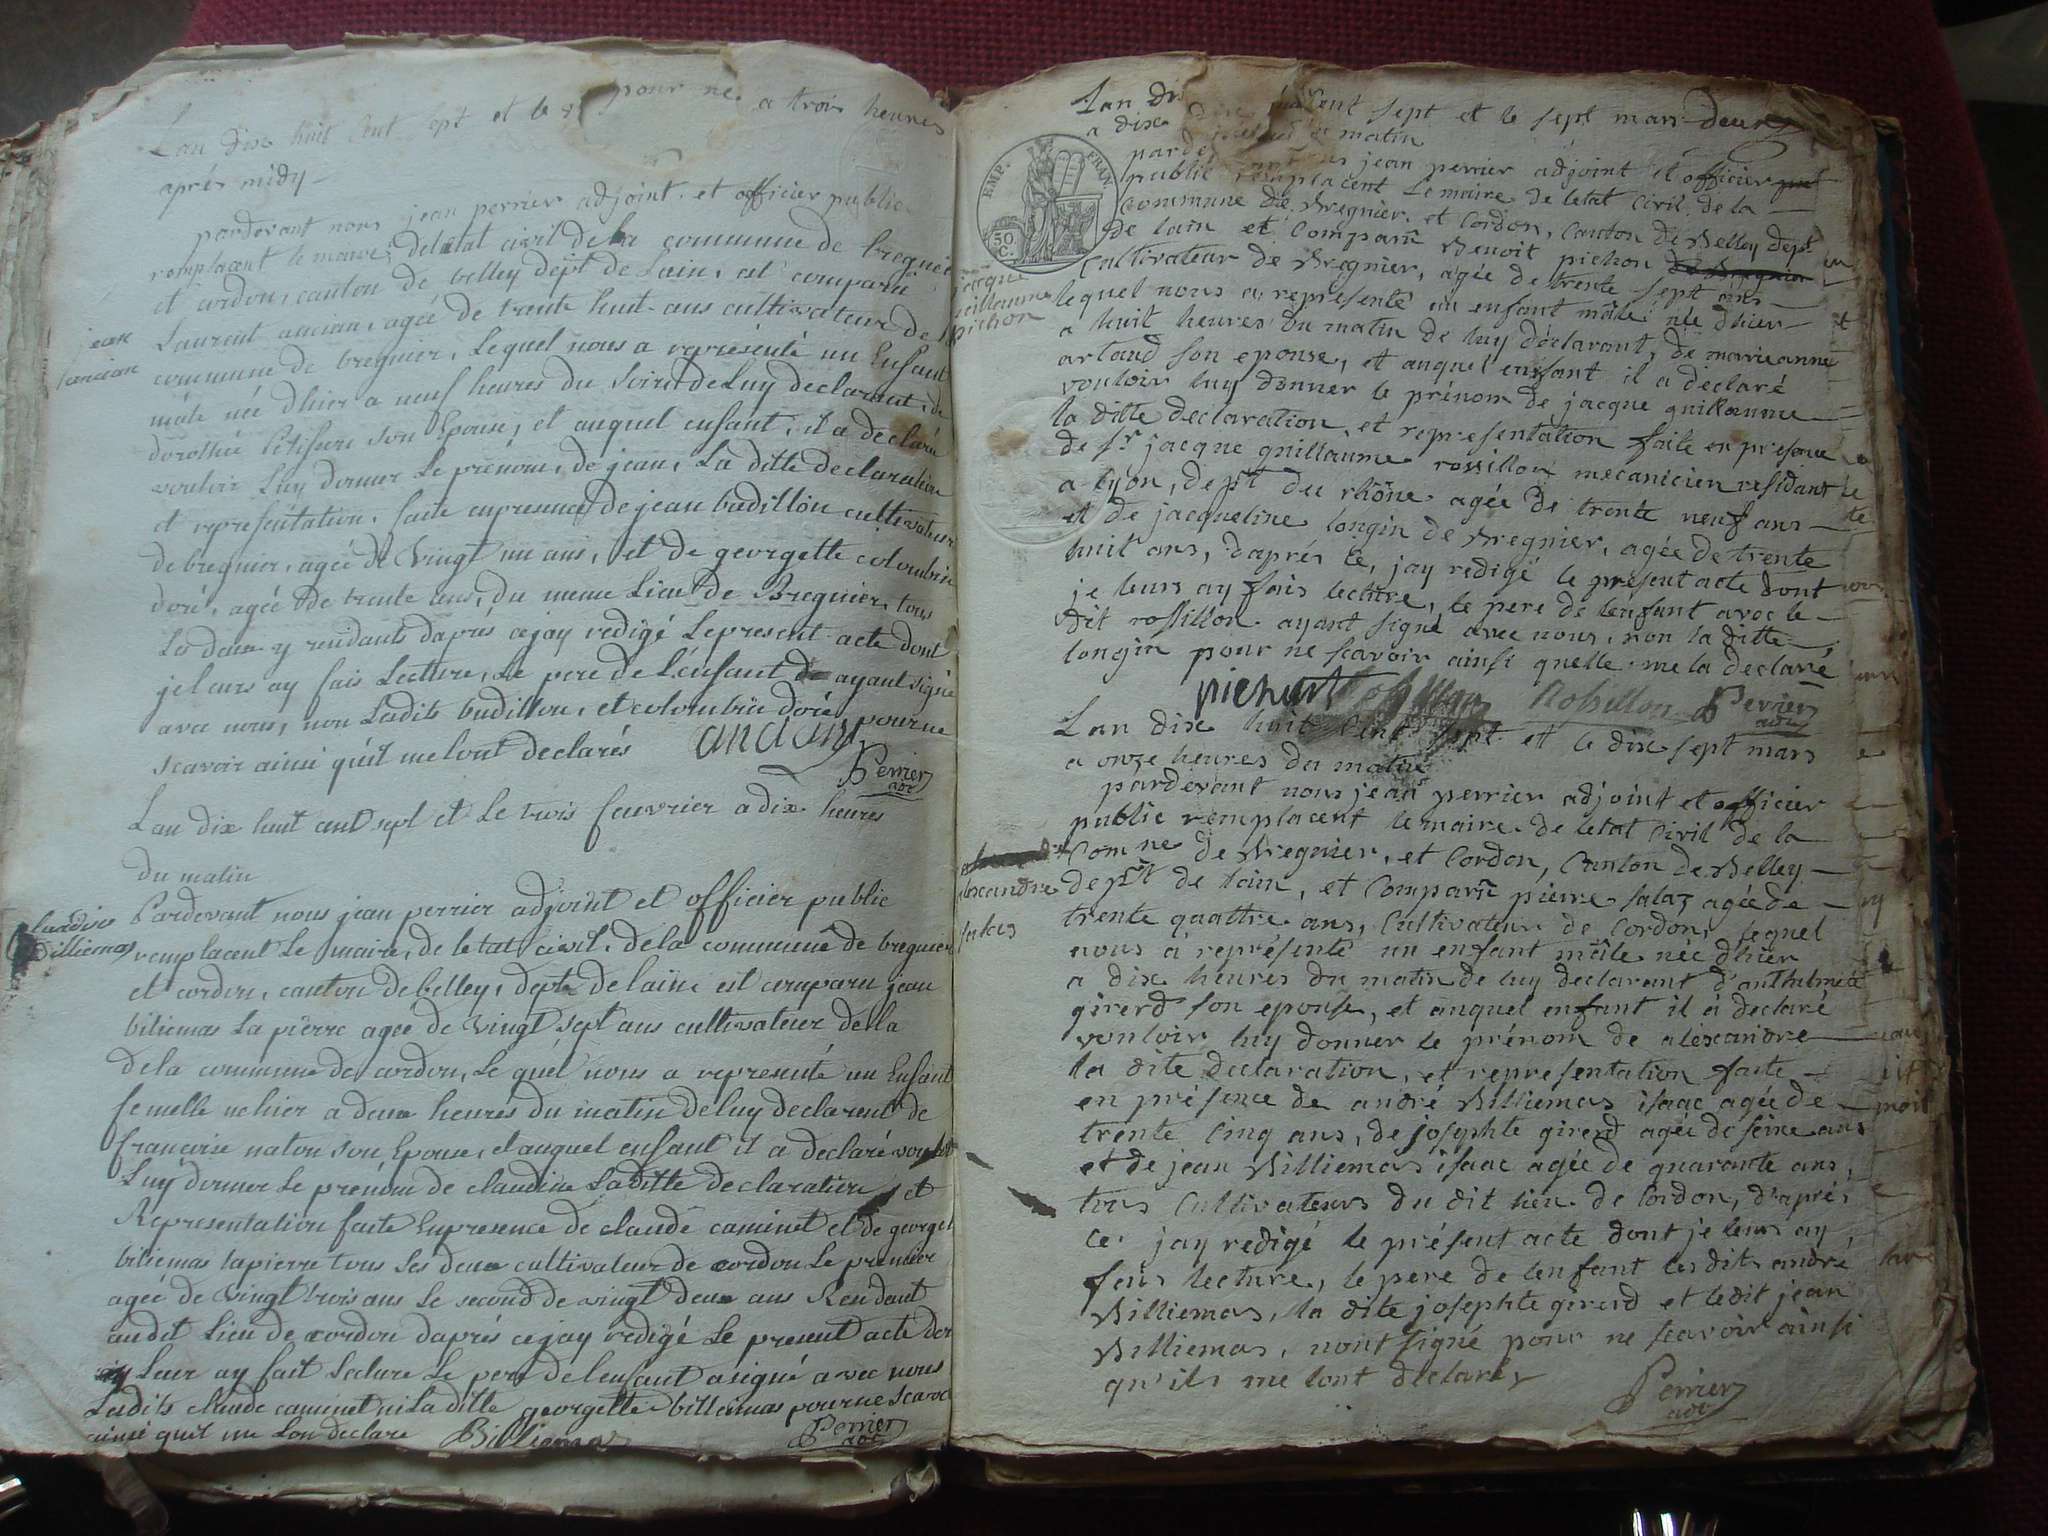 pour ne
Lan dix huit Cent sept et le a trois heures
aprés midy
pardevant nous jean perrier adjoint et officier public
remplacent le maire, deletat civil dela commune de bregnier
et cordon, canton de belley dept de Lain, est comparu
Laurent ancian, agée de trente huit ans cultivateur de
jean
ancian
commune de bregnier, Lequel nous a représenté un Enfant
mâle née dhier a neuf heures du soir de Luy declarant, de
dorothée son Epouse, et auquel enfant, il a declaré
vouloir Luy donner Le prénom, de jean, La ditte declaration
et representation, faite en presence de jean budillon cultivateur
de bregnier, agée de vingt un ans, et de georgette colombin
doré, agée de trente ans, du meme Lieu de Bregnier, tous
Les deux y residants daprés ce jay redigé Le present acte dont
je leurs ay fais Lecture, Le pere de L'enfant ayant signé
avec nous, non Ladits budillon, et colombin doré, pour ne
scavoir ainsi qu'il me lont declarés ancian
Perrier
adt
Lan dix huit cent sept et Le trois feuvrier a dix heures
du matin
claudine
Billiemas
Pardevant nous jean perrier adjoint et officier public
remplacent Le maire, de letat civil, dela commune de bregnier
et cordon, canton de belley, dept de lain est comparu jean
biliemas La pierre agee de vingt sept ans cultivateur de la
de la commune de cordon, Le quel nous a representé un Enfant
femelle ne hier a deux heures du matin de luy declarent de
francoise naton son Epouse, et auquel enfant il a declaré vouloir
Luy donner Le prénom de claudine La ditte declaration et
Representation faite En presence de claude caminet et de georget
biliemas lapierre tous les deux cultivateur de cordon Le premier
agée de vingt trois ans Le second de vingt deux ans Residant
au dit Lieu de cordon daprés ce jay redigé Le present acte don
Leur ay fait Lecture Le pere de lenfant a signé avec nous
Ladits claude caminet ni La ditte georgette billiemas pour ne scavoir
ainsi quil me Lon declare Billiemas Perrier
adt
Lan dix huit Cent sept et le sept mars
a dix heures du matin
EMP. FRAN.
50
C.
pardevant nous jean perrier adjoint et officier
public remplacent le maire de letat civil de la
commune de Bregnier, et Cordon, Canton de Belley dept
de lain et Comparu Benoit pichon
Cultivateur de Bregnier, agée de trente sept ans
jacque
guillaume
pichon
lequel nous a representé un enfant mâle née dhier
a huit heures du matin de luy déclarant, de marieanne
artaud son epouse, et auquel enfant il a declaré
vouloir luy donner le prénom de jacque guillaume
la ditte declaration, et representation faite en presence
de sr jacque guillaume rossillon mecanicien residant
a lyon, dept du rhône agée de trente neuf ans
et de jacqueline longin de Bregnier, agée de trente
huit ans, daprés ce, jay redigé le présent acte dont
je leurs ay fais lecture, le pere de lenfant avec le
dit rossillon ayant signé avec nous, non la ditte
longin pour ne scavoir ainsi quelle me la declaré
pichon Rosillon Perrier
adt
Lan dix huit Cent sept et le dix sept mars
a onze heures du matin
pardevant nous jean perrier adjoint et officier
public remplacent le maire de letat civil de la
Comne de Bregnier, et Cordon, Canton de Belley
alexandre
salaz
dept de lain, et Comparu pierre salaz agée de
trente quattre ans, Cultivateur de Cordon, lequel
nous a représenté un enfant mâle née dhier
a dix heures du matin de luy declarant d'anthelmia
girerd son epouse, et auquel enfant il a declaré
vouloir luy donner le prénom de alexandre
la dite declaration, et representation faite
en présence de andré Billiemas isaac agée de
trente cinq ans, de josephte girerd agée de seize ans
et de jean Billiemas isaac agée de quarante ans,
tous Cultivateurs du dit lieu de Cordon, d'aprés
ce jay redigé le présent acte dont je leurs ay
fais lecture, le pere de lenfant les dits andré
Billiemas, la dite josephte girerd et ledit jean
Billiemas, nont signé pour ne scavoir ainsi
qu'ils me lont déclarés
Perrier
adt